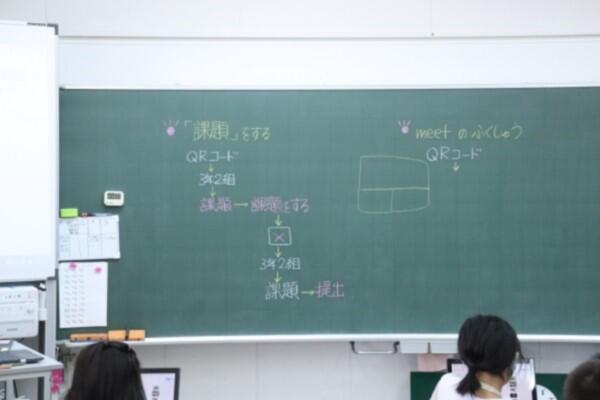 「課題」をする
QRコード
↓
3年2組
↓
課題→課題をする
↓
×
↓
3年2組
↓
課題→提出
meetのふくしゅう
QRコード
↓